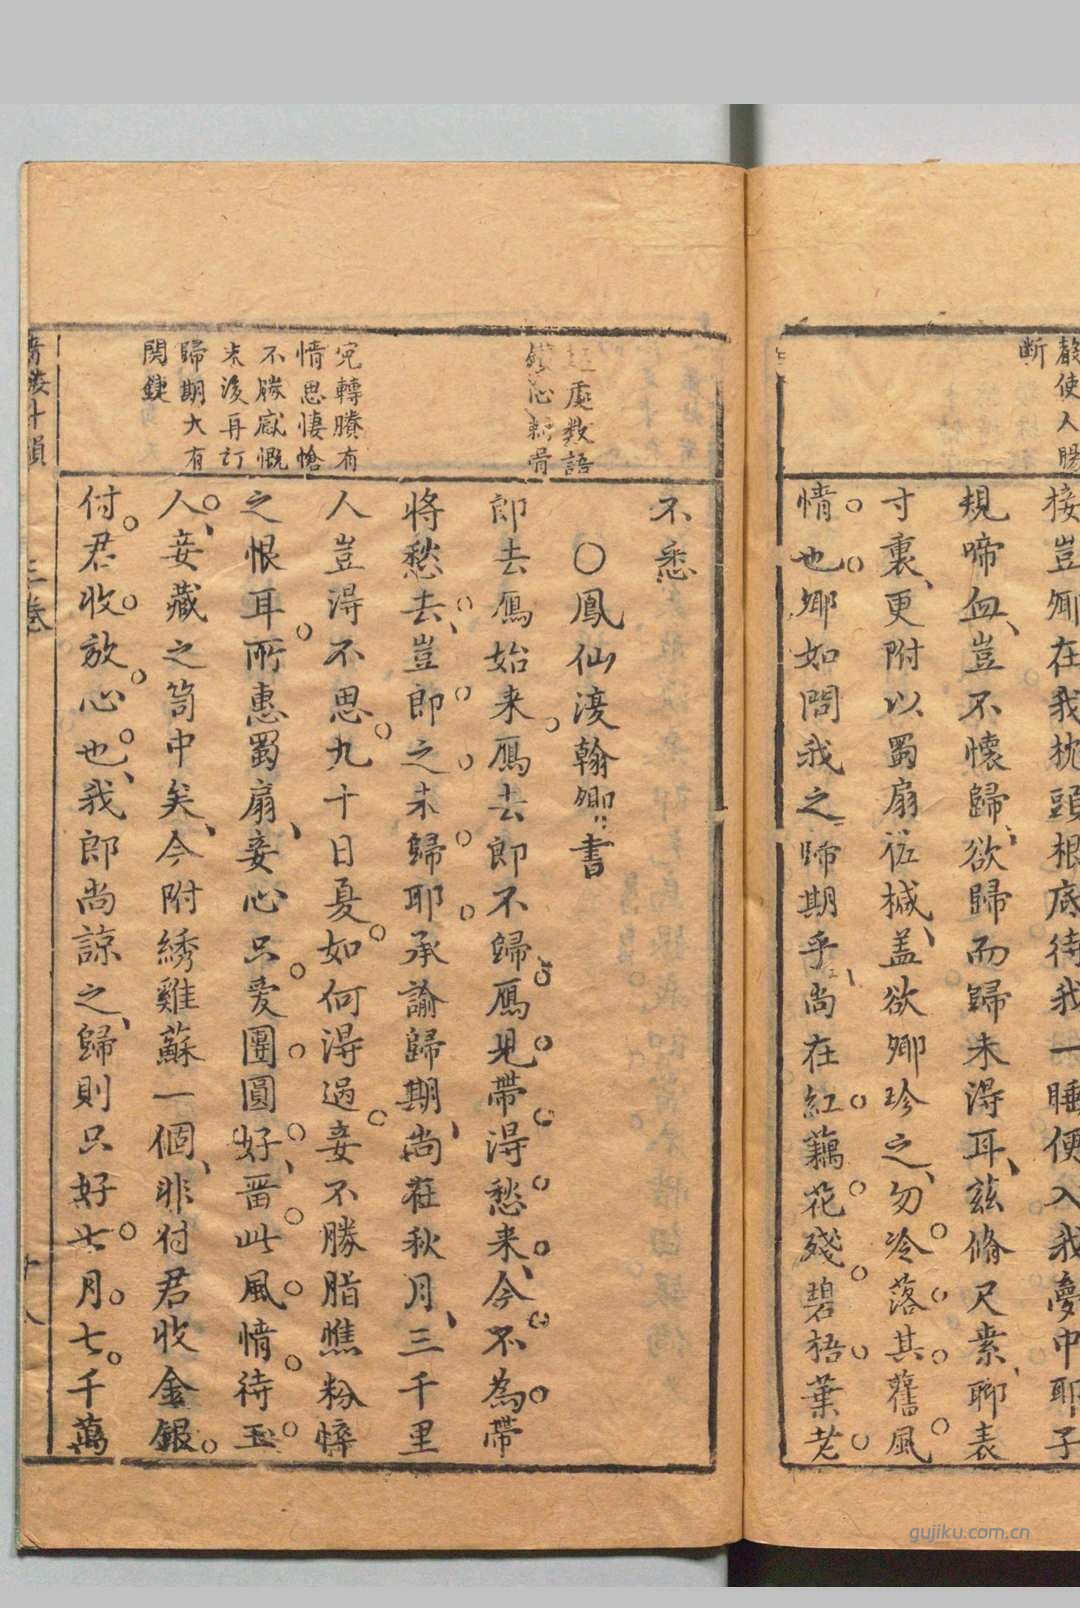 㱿使人腸
断
接豈卿在我枕頭根底待我一睡便入我夢中耶子
規啼血豈不懷歸欲歸而歸未得耳兹脩尺素聊表
寸裏更附以蜀扇裢椷盖欲卿珍之勿冷落其舊風
情也卿如問我之歸期乎尚在紅藕花殘碧梧葉老
數語
宛轉賸有
情思悽愴
不勝感慨
末後再訂
歸期大有
関鍵
不悉
○鳳仙復翰卿書
郎去鴈始来鴈去郎不歸鴈見帶得愁来今不為帶
将愁去豈郎之未歸耶承諭歸期尚在秋月三千里
人豈得不思九十日夏如何得過妾不勝脂憔粉悴
之恨耳所惠蜀扇妾心只愛團圓好畱此風情待玉
人妾藏之笥中矣今附綉雞蘇一個非付君收金銀
付君收放心也我郎尚諒之歸則只好七月七千萬
三卷
十八